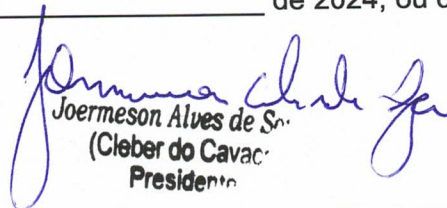 de 2024, ou
Joermeson Alves de
(Cleber do Cavac
Presiden